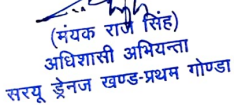 (मंयक राज सिंह)
अधिशासी अभियन्ता
सरयू ड्रेनज खण्ड-प्रथम गोण्डा